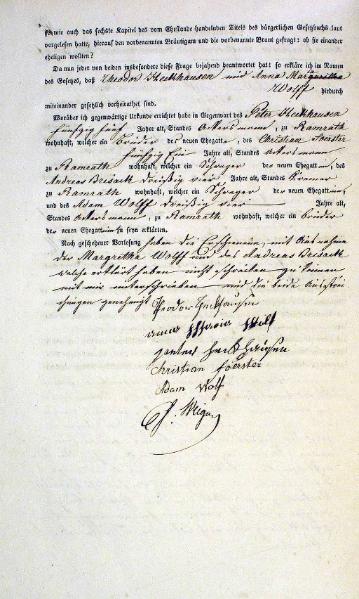 sowie auch das sechste Kapitel des vom Ehestande handelnden Titels des bürgerlichen Gesetzbuchs laut
vorgelesen hatte, hierauf den vorbenannten Bräutigam und die vorbenannte Braut gefragt: ob sie einander
eheligen wollen?
Da nun jeder von beiden insbesondere diese Frage bejahend beantwortet hatte so erkläre ich im Namen
des Gesetzes, daß Theodor Heckhausen und Anna Margaretha
Wolff hiedurch
miteinander gesetzlich verheirathet sind.
Worüber ich gegenwärtige Urkunde errichtet habe in Gegenwart des Peter Heckhausen
fünfzig fünf Jahre alt, Standes Ackersmann, zu Ramrath
wohnhaft, welcher ein Bruder des neuen Ehegatten, des Christian Förster
fünfzig fünf Jahre alt, Standes Ackersmann
zu Ramrath wohnhaft, welcher ein Schwager des neuen Ehegatten, des
Andreas dreißig vier Jahre alt, Standes
zu Ramrath wohnhaft, welcher ein Schwager des neuen Ehegatten
und des Adam Wolff dreißig vier Jahre alt,
Standes Ackersmann, zu Ramrath wohnhaft, welcher ein Bruder
der neuen Ehegattin zu seyn erklärten.
Nach geschehener Vorlesung haben die Erschienenen, mit Ausnahme
der Margretha Wolff und des Andreas
welche erklärt haben nicht schreiben zu können
mit mir unterschrieben und die beide Ausstrei
chungen genehmigt
Theodor Heckhausen
heckhausen
Christian foerster
Adam Wolf